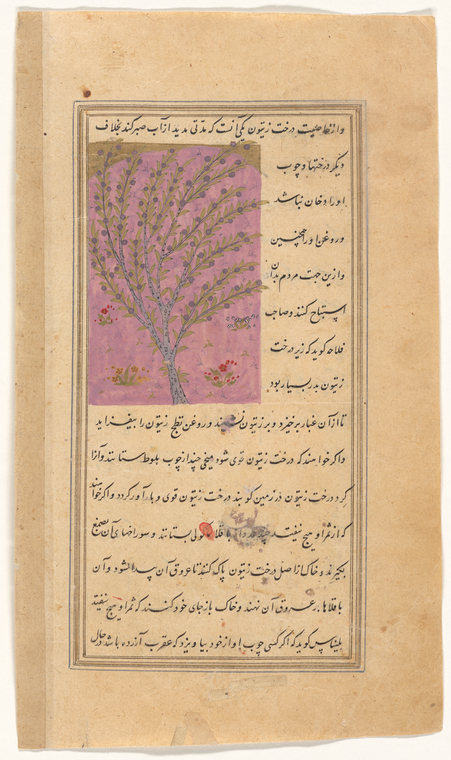 واز خاصیت درخت زیتون یکی آنست که مدتی مدید از آب صبر کند بخلاف
دیگر درختها و چوب
اورا دخان نباشد
و روغن او را همچنین
و ازین جهت مردم بدان
استصباح کنند و صاحب
فلاحه کوید که زیر درخت
زیتون بدر بسیار بود
تا از آن غبار برخیزد و بر زیتون نشیند و روغن نطج زیتون را بیفزاید
و اکر خواهند که درخت زیتون قوی شود میخی چند از چوب بلوط ستانند و آنرا
کرد درخت زیتون در زمین کوبند درخت زیتون قوی و بارآور کردد و اکر خواهند
که از ثمر او هیچ نیفتد چند عدد باقلا ستانند و سوراخهای آن بصمغ
بکیرند و خاک از اصل درخت زیتون پاک کنند تا عروق آن پیدا شود و آن
باقلاها بر عروق آن نهند و خاک باز جای خود کنند که ثمر او هیچ نیفتد
بلیناس کوید که اکر کسی چوب او از خود بیاویزد که عقرب آزرده باشد در حال